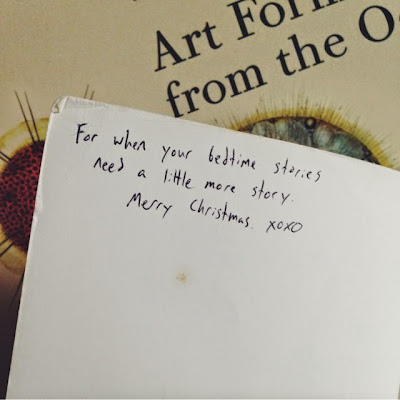 Art Form
from the O
For when your bedtime stories
need a little more story.
Merry Christmas. xoxo